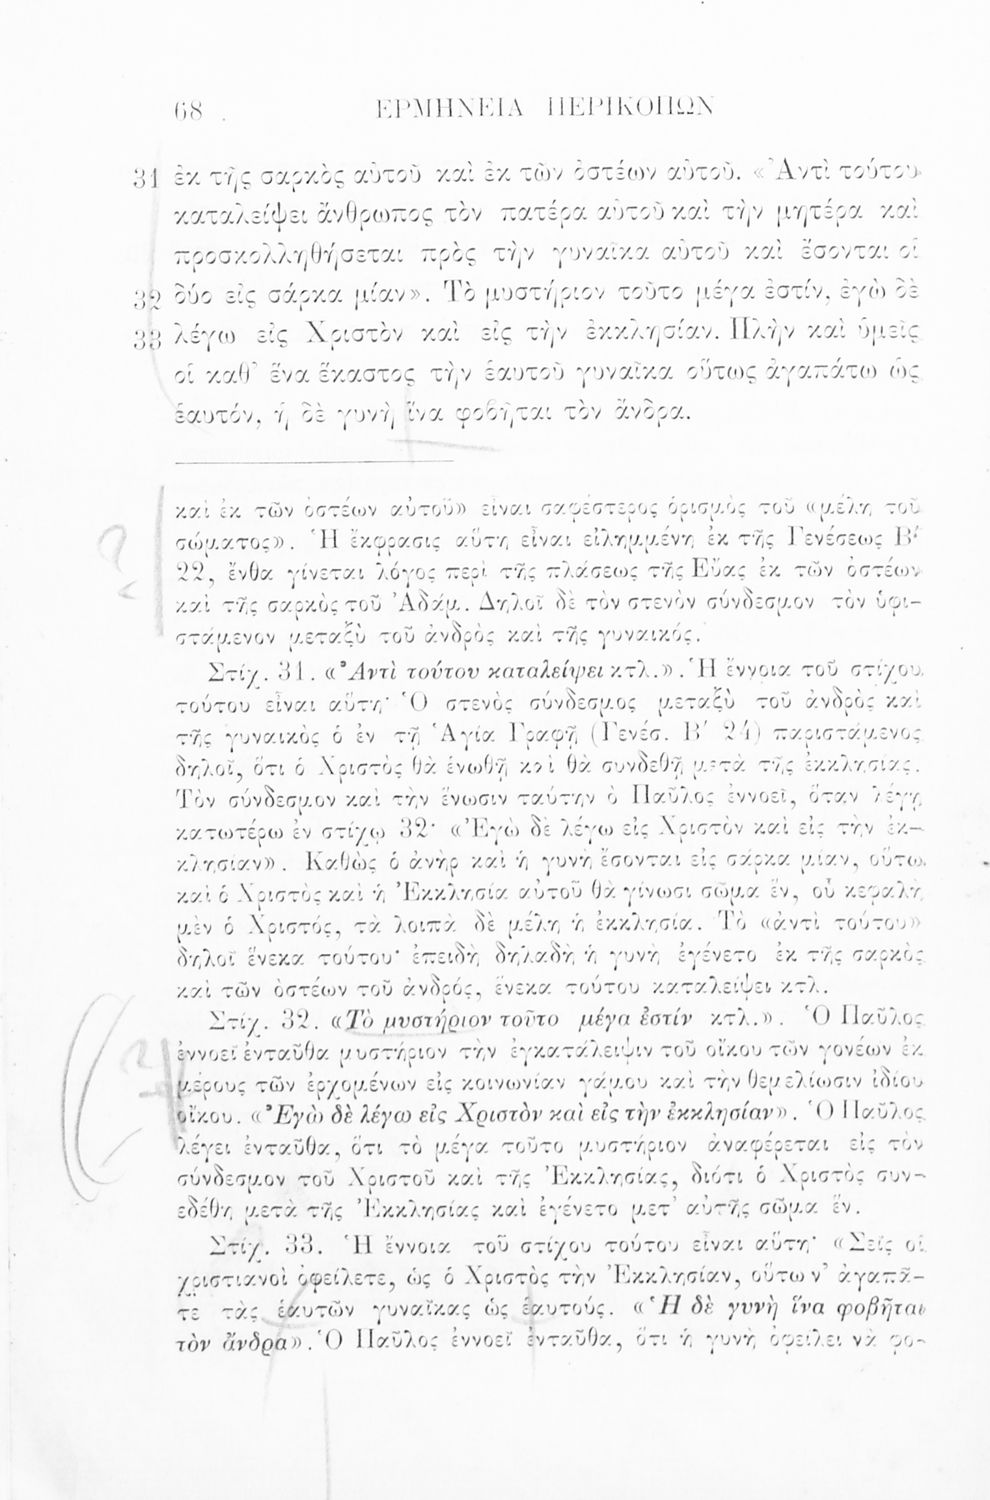 68 ΕΡΜΗΝΕΙΑ ΠΕΡΙΚΟΠΩΝ
31 ἐκ τῆς σαρκὸς αὐτοῦ καὶ ἐκ τῶν ὀστέων αὐτοῦ. «Ἀντὶ τούτου
καταλείψει ἄνθρωπος τὸν πατέρα αὐτοῦ καὶ τὴν μητέρα καὶ
προσκολληθήσεται πρὸς τὴν γυναῖκα αὐτοῦ καὶ ἔσονται οἱ
32 δύο εἰς σάρκα μίαν». Τὸ μυστήριον τοῦτο μέγα ἐστίν, ἐγὼ δὲ
33 λέγω εἰς Χριστὸν καὶ εἰς τὴν ἐκκλησίαν. Πλὴν καὶ ὑμεῖς
οἱ καθ’ ἕνα ἕκαστος τὴν ἑαυτοῦ γυναῖκα οὕτως ἀγαπάτω ὡς
ἑαυτόν, ἡ δὲ γυνὴ ἵνα φοβῆται τὸν ἄνδρα.
καὶ ἐκ τῶν ὀστέων αὐτοῦ» εἶναι σαφέστερος ὁρισμὸς τοῦ «μέλη τοῦ
σώματος». Ἡ ἔκφρασις αὕτη εἶναι εἰλημμένη ἐκ τῆς Γενέσεως Β′
22, ἔνθα γίνεται λόγος περὶ τῆς πλάσεως τῆς Εὔας ἐκ τῶν ὀστέων
καὶ τῆς σαρκὸς τοῦ Ἀδάμ. Δηλοῖ δὲ τὸν στενὸν σύνδεσμον τὸν ὑφι-
στάμενον μεταξὺ τοῦ ἀνδρὸς καὶ τῆς γυναικός.
Στίχ. 31. «Ἀντὶ τούτου καταλείψει κτλ.». Ἡ ἔννοια τοῦ στίχου
τούτου εἶναι αὕτη· Ὁ στενὸς σύνδεσμος μεταξὺ τοῦ ἀνδρὸς καὶ
τῆς γυναικὸς ὁ ἐν τῇ Ἁγίᾳ Γραφῇ (Γενέσ. Β′ 24) παριστάμενος
δηλοῖ, ὅτι ὁ Χριστὸς θὰ ἑνωθῇ καὶ θὰ συνδεθῇ μετὰ τῆς ἐκκλησίας.
Τὸν σύνδεσμον καὶ τὴν ἕνωσιν ταύτην ὁ Παῦλος ἐννοεῖ, ὅταν λέγῃ
κατωτέρω ἐν στίχῳ 32· «Ἐγὼ δὲ λέγω εἰς Χριστὸν καὶ εἰς τὴν ἐκ-
κλησίαν». Καθὼς ὁ ἀνὴρ καὶ ἡ γυνὴ ἔσονται εἰς σάρκα μίαν, οὕτω
καὶ ὁ Χριστὸς καὶ ἡ Ἐκκλησία αὐτοῦ θὰ γίνωσι σῶμα ἕν, οὗ κεφαλὴ
μὲν ὁ Χριστός, τὰ λοιπὰ δὲ μέλη ἡ ἐκκλησία. Τὸ «ἀντὶ τούτου»
δηλοῖ ἕνεκα τούτου· ἐπειδὴ δηλαδὴ ἡ γυνὴ ἐγένετο ἐκ τῆς σαρκὸς
καὶ τῶν ὀστέων τοῦ ἀνδρός, ἕνεκα τούτου καταλείψει κτλ.
Στίχ. 32. «Τὸ μυστήριον τοῦτο μέγα ἐστίν κτλ.». Ὁ Παῦλος
ἐννοεῖ ἐνταῦθα μυστήριον τὴν ἐγκατάλειψιν τοῦ οἴκου τῶν γονέων ἐκ
μέρους τῶν ἐρχομένων εἰς κοινωνίαν γάμου καὶ τὴν θεμελίωσιν ἰδίου
οἴκου. «Ἐγὼ δὲ λέγω εἰς Χριστὸν καὶ εἰς τὴν ἐκκλησίαν». Ὁ Παῦλος
λέγει ἐνταῦθα, ὅτι τὸ μέγα τοῦτο μυστήριον ἀναφέρεται εἰς τὸν
σύνδεσμον τοῦ Χριστοῦ καὶ τῆς Ἐκκλησίας, διότι ὁ Χριστὸς συν-
εδέθη μετὰ τῆς Ἐκκλησίας καὶ ἐγένετο μετ’ αὐτῆς σῶμα ἕν.
Στίχ. 33. Ἡ ἔννοια τοῦ στίχου τούτου εἶναι αὕτη· «Σεῖς οἱ
χριστιανοὶ ὀφείλετε, ὡς ὁ Χριστὸς τὴν Ἐκκλησίαν, οὕτω ν’ ἀγαπᾶ-
τε τὰς ἑαυτῶν γυναῖκας ὡς ἑαυτούς. «Ἡ δὲ γυνὴ ἵνα φοβῆται
τὸν ἄνδρα». Ὁ Παῦλος ἐννοεῖ ἐνταῦθα, ὅτι ἡ γυνὴ ὀφείλει νὰ φο-